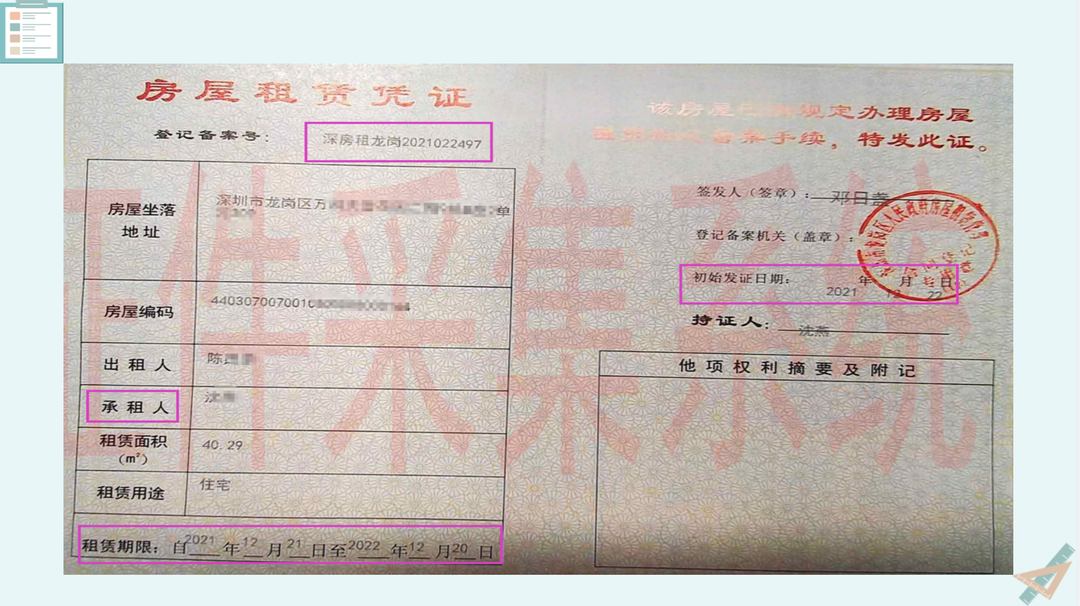 房屋租赁凭证
登记备案号：
深房租龙岗2021022497
房屋坐落
地址
深圳市龙岗区万
单
房屋编码
4403070070010
出租人
陈
承租人
租赁面积
（m²）
40.29
租赁用途
住宅
租赁期限：自2021年12月21日至2022年12月20日
该房屋 规定办理房屋
手续，特发此证。
签发人（签章）：邓日
登记备案机关（盖章）：
初始发证日期：2021年12月22日
持证人：沈燕
他项权利摘要及附记
证采集系统